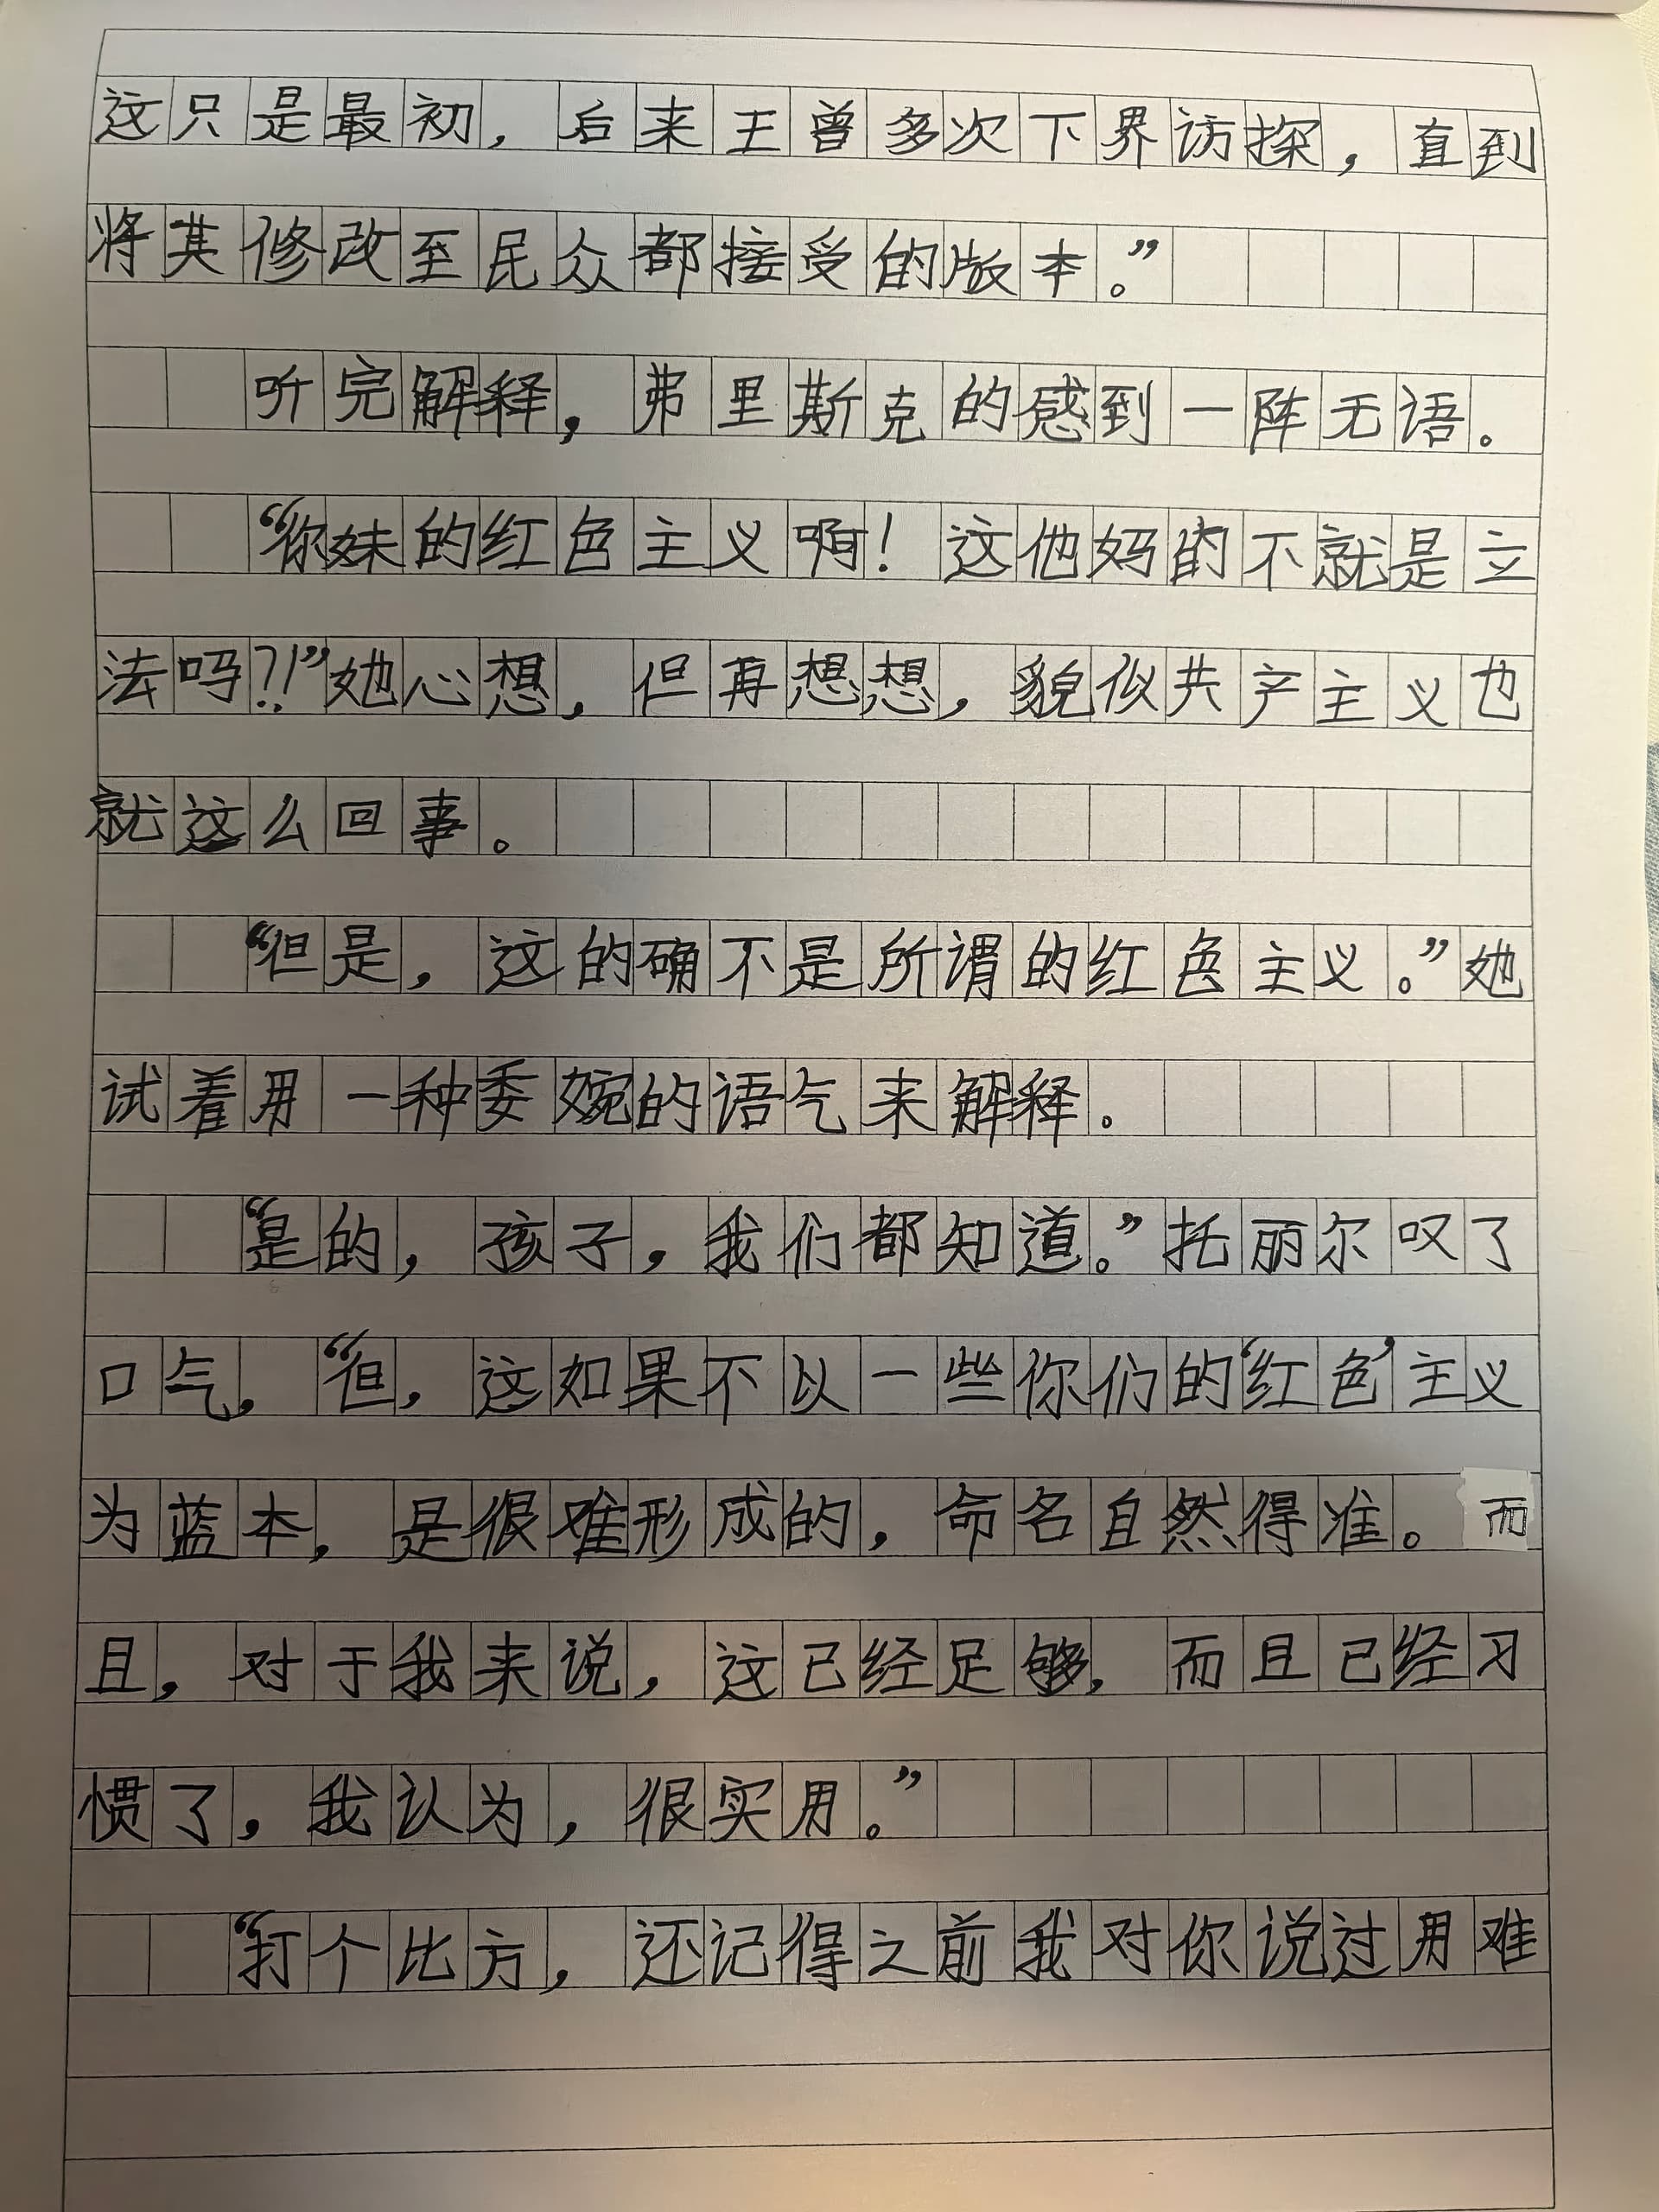 这只是最初，后来王曾多次下界访探，直到
将其修改至民众都接受的版本。”
听完解释，弗里斯克的感到一阵无语。
“你妹的红色主义啊！这他妈的不就是立
法吗?!”她心想，但再想想，貌似共产主义也
就这么回事。
“但是，这的确不是所谓的红色主义。”她
试着用一种委婉的语气来解释。
“是的，孩子，我们都知道。”托丽尔叹了
口气，“但，这如果不以一些你们的‘红色’主义
为蓝本，是很难形成的，命名自然得准。而
且，对于我来说，这已经足够，而且已经习
惯了，我认为，很实用。”
“打个比方，还记得之前我对你说过用难